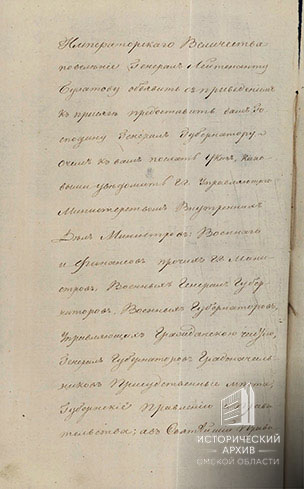 Императорскаго Величества
повеленіе Генералъ Лейтенанту
Булатову объявить съ приведеніемъ
къ присягѣ предоставить вамъ Го-
сподину Генералъ Губернатору, о
чемъ къ вамъ послать указъ, како-
выми увѣдомить Гг. Управляющаго
Министерствомъ Внутреннихъ
Дѣлъ Министровъ: Военнаго
и Финансовъ прочихъ Гг. Мини-
стровъ, Военныхъ Генералъ Губер-
наторовъ, Военныхъ Губернаторовъ,
Управляющихъ Гражданскою частію,
Генералъ Губернаторовъ Градоначаль-
никовъ Присудственныя мѣста,
Губернскія Правленія и Прави-
тельства; а въ Святѣйшій Прави-
ИСТОРИЧЕСКИЙ
АРХИВ
ОМСКОЙ ОБЛАСТИ